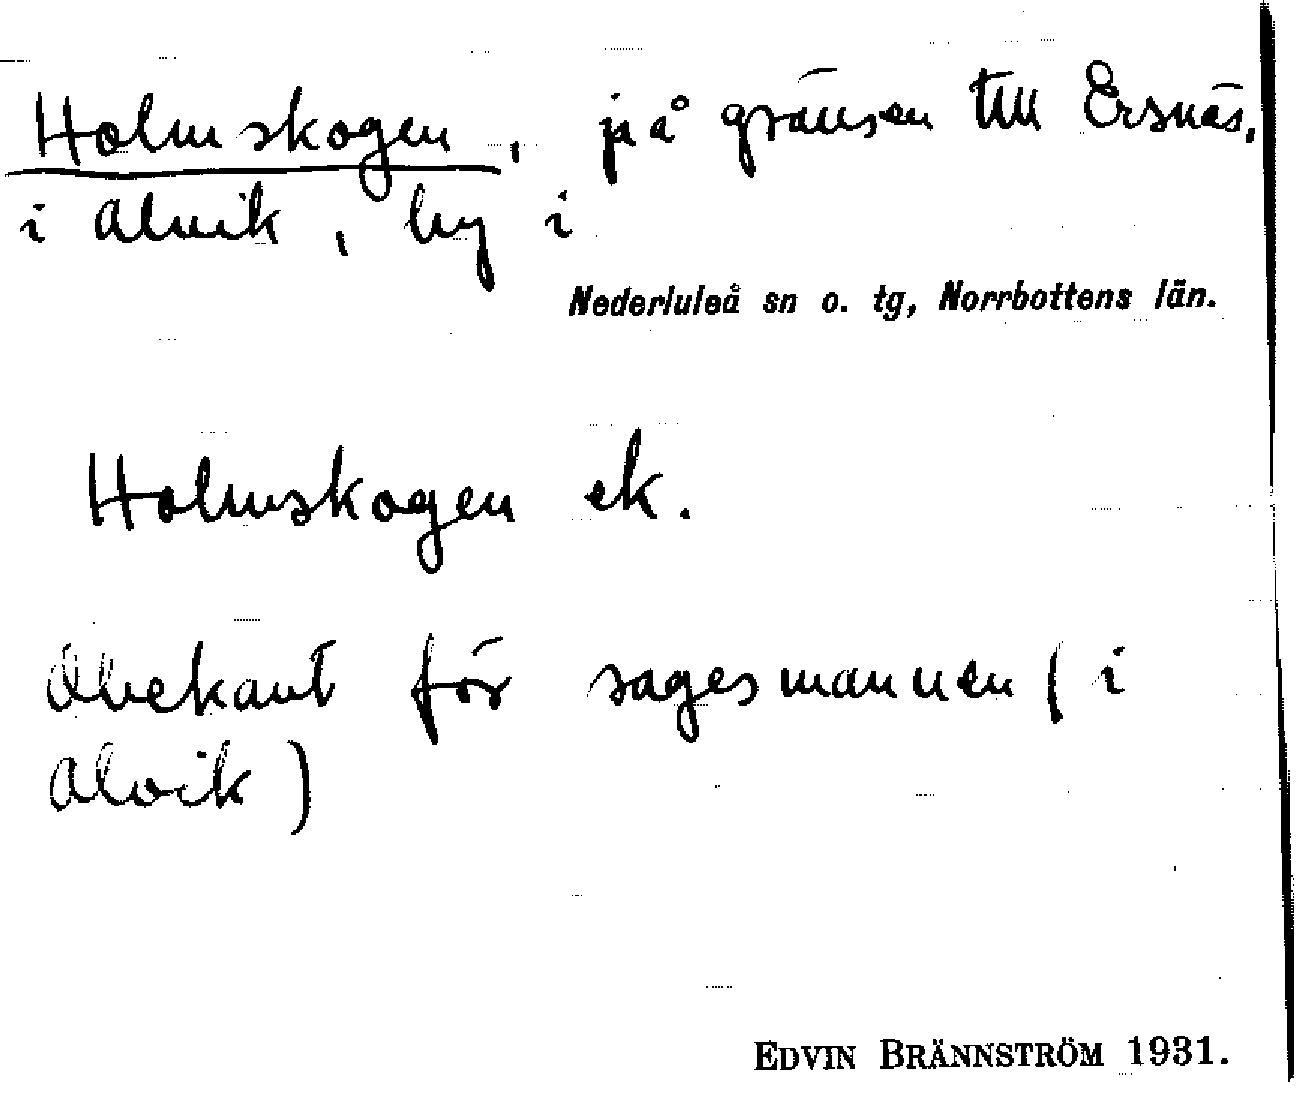 Holmskogen, på gränsen till Ersnäs,
i Alvik, by i
Nederluleå sn o. tg, Norrbottens län.
Holmskogen ek.
Obekant för sagesmannen (i
Alvik)
EDVIN BRÄNNSTRÖM 1931.